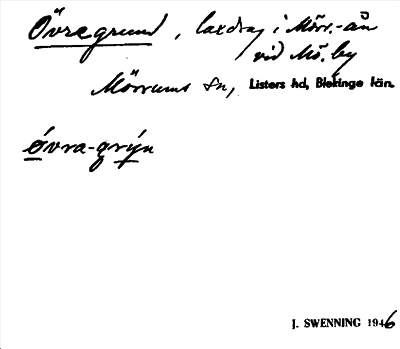 Övregrund, laxdrag i Mörr.-ån
vid Mö. by
Mörrums sn, Listers hd, Blekinge län.
övra-grýn
J. SWENNING 1946